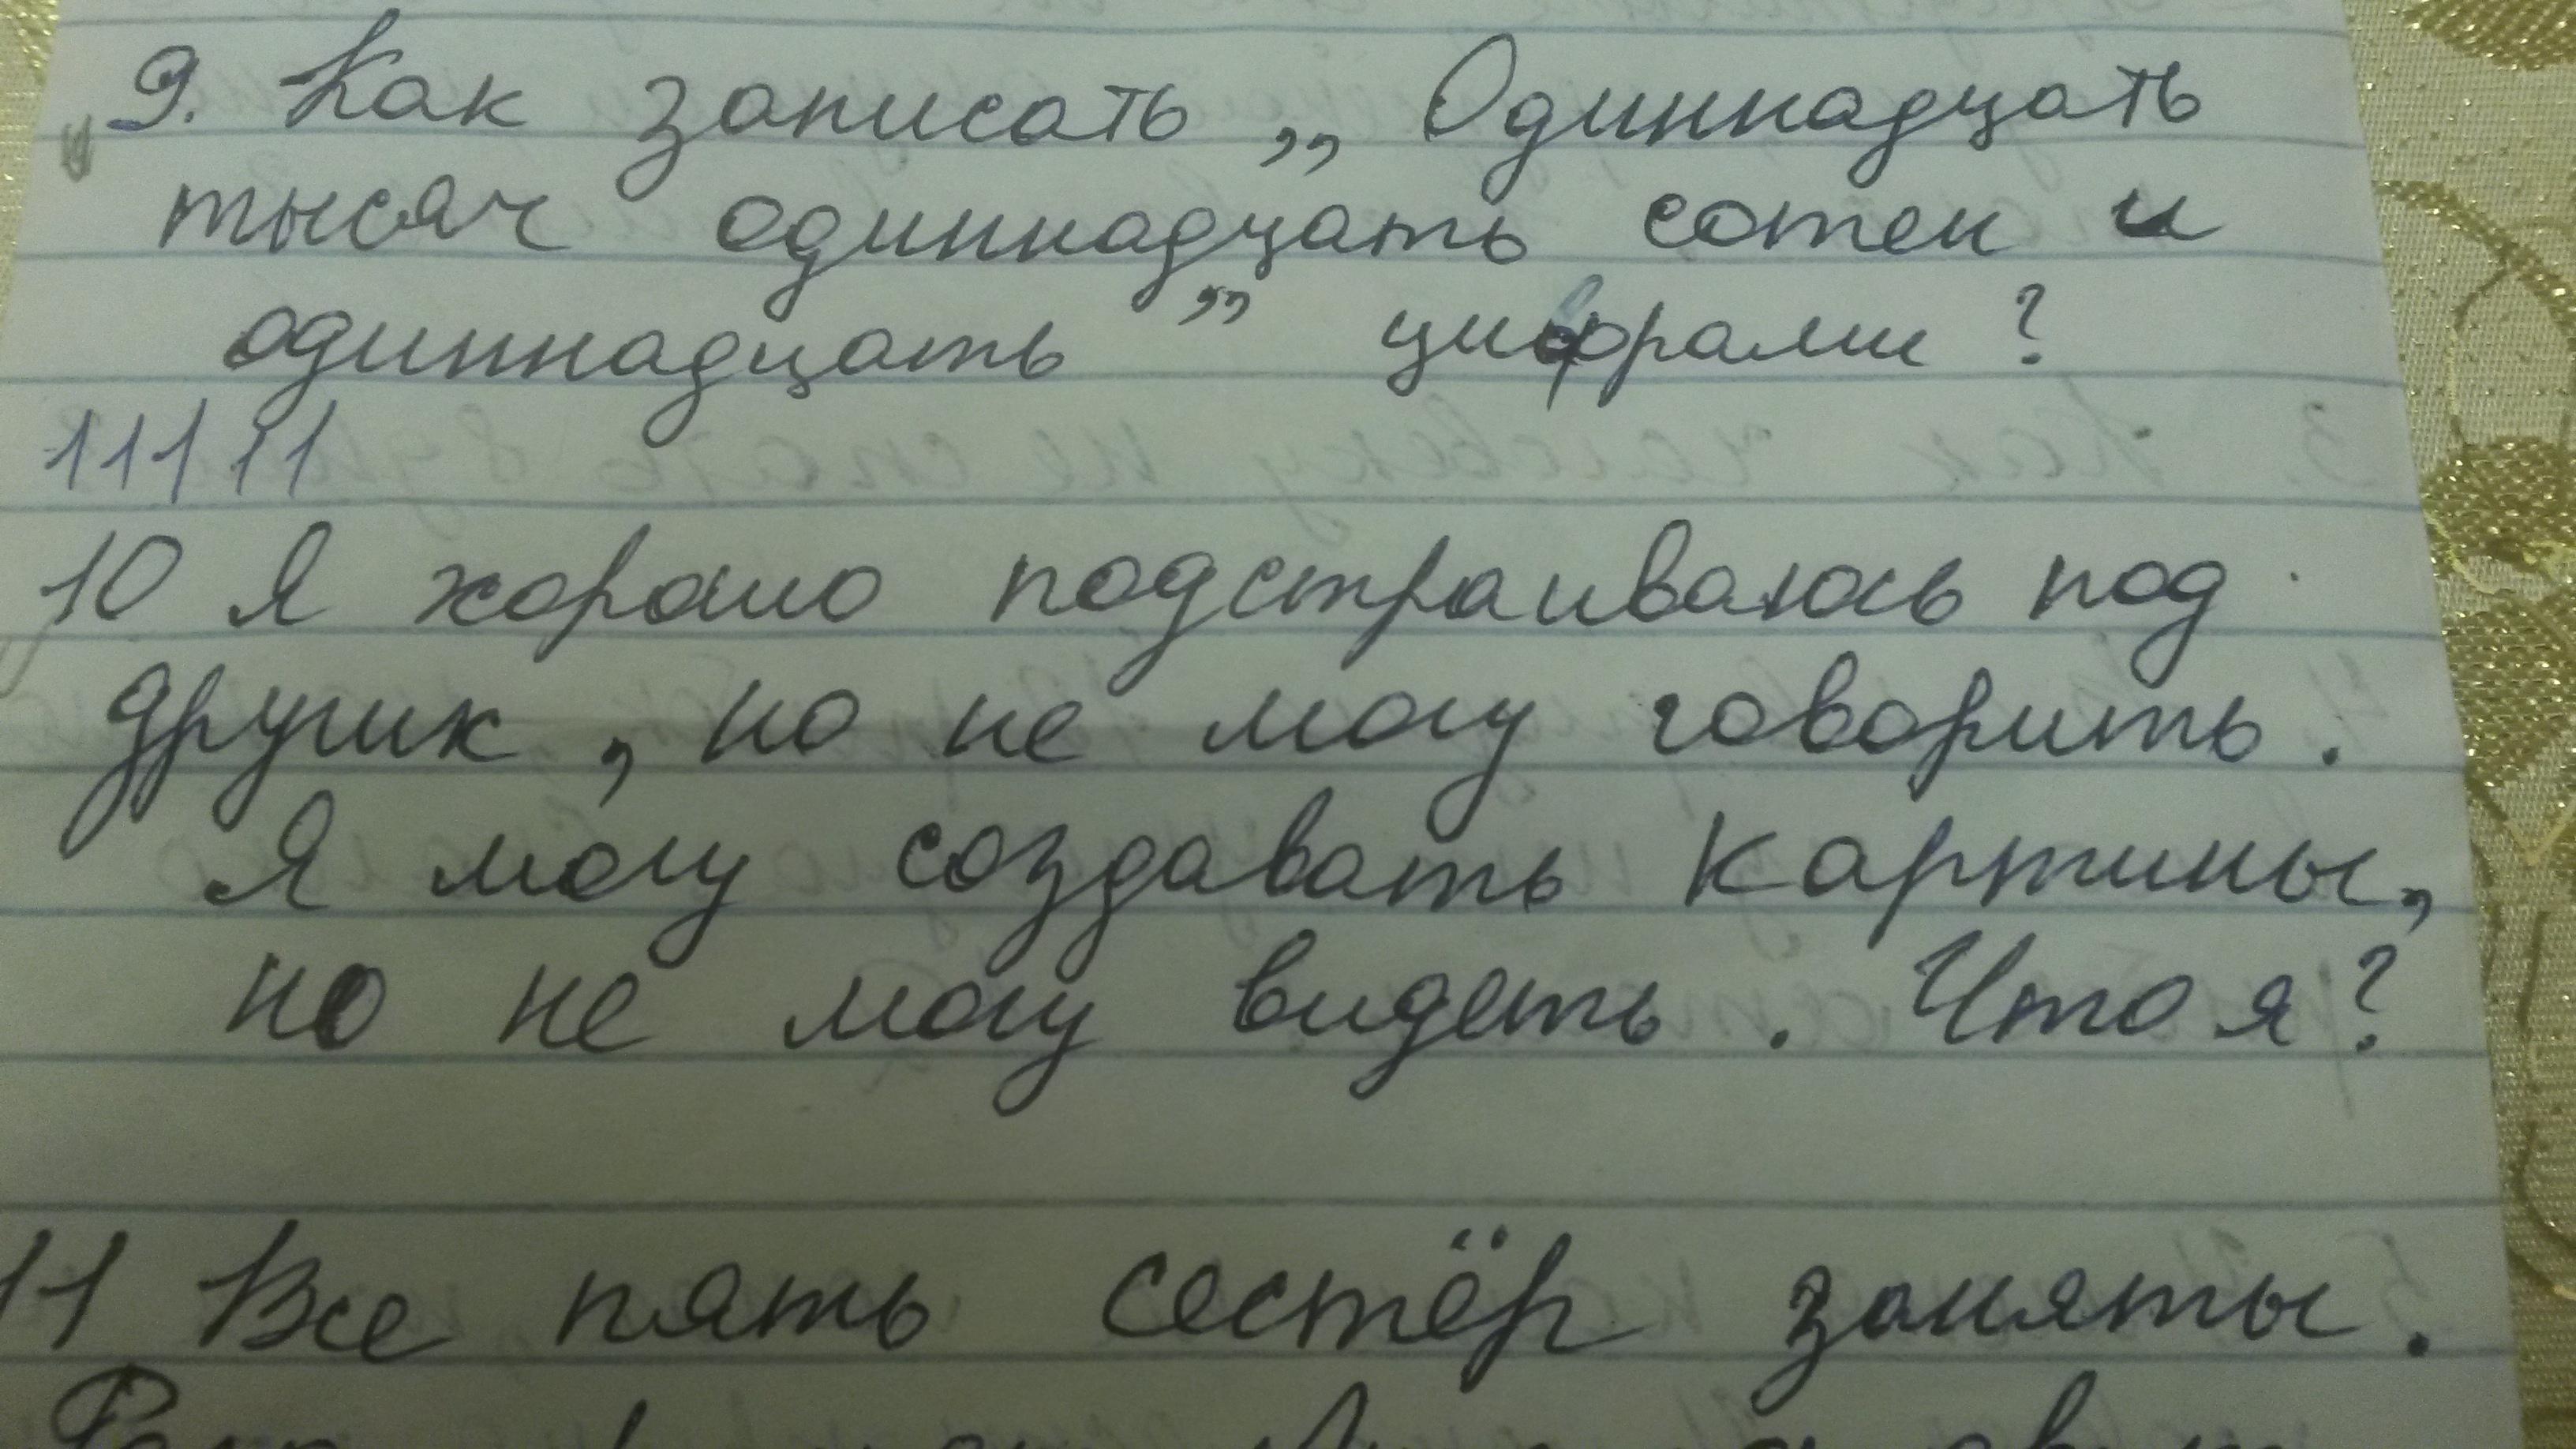 9. Как записать „ Одиннадцать
тысяч одиннадцать сотен и
одиннадцать” цифрами ?
11111
10 Я хорошо подстраиваюсь под
других , но не могу говорить .
Я могу создавать картины,
но не могу видеть . Что я?
11 Все пять сестёр заняты .